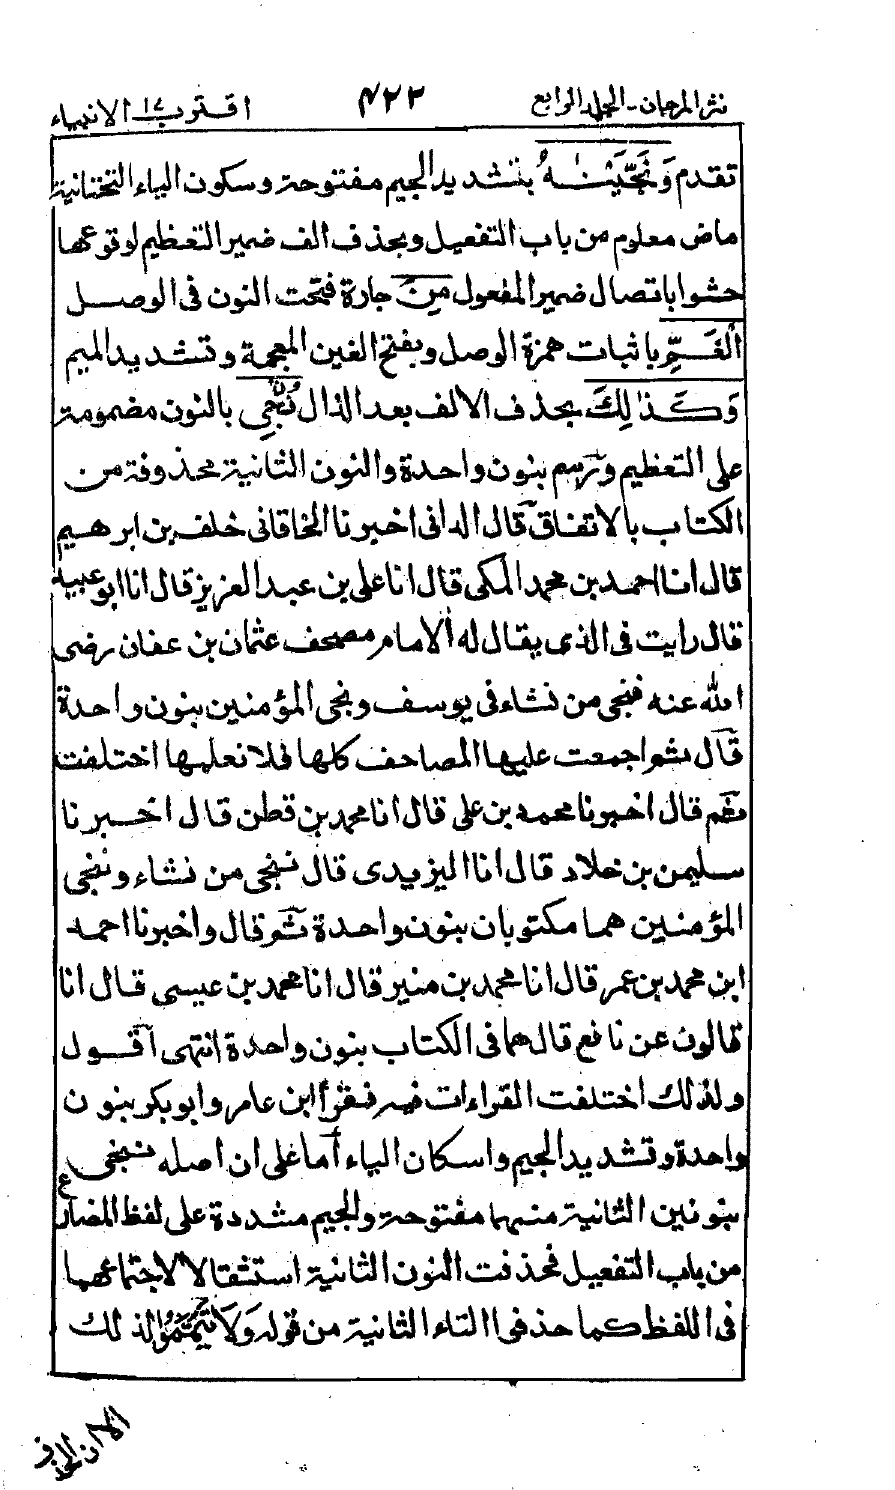 نثر المرجان - الجلد الرابع ٤٢٢ اقترب ١٧ الانبياء
تقدم وَنَجَّيْنٰهُ بتشديد الجيم مفتوحة وسكون الياء التحتانية
ماض معلوم من باب التفعيل وبحذف الف ضمير التعظيم لوقوعها
حشوا باتصال ضمير المفعول مِنَ جارة فتحت النون فى الوصل
الْغَمِّ باثبات همزة الوصل وبفتح الغين المعجمة وتشديد الميم
وَكَذٰلِكَ بحذف الالف بعد الذال نُـْۨجِي بالنون مضمومة
على التعظيم ورسم بنون واحدة والنون الثانية محذوفة من
الكتاب بالاتفاق قال الدانى اخبرنا الخاقانى خلف بن ابرهيم
قال انا احمد بن محمد المكى قال انا على بن عبد العزيز قال انا ابو عبيد
قال رايت فى الذى يقال له الامام مصحف عثمان بن عفان رضى
الله عنه فنجى من نشاء فى يوسف ونجى المؤمنين بنون واحدة
قال ثم اجمعت عليها المصاحف كلها فلا نعلمها اختلفت
ثم قال اخبرنا محمد بن على قال انا محمد بن قطن قال اخبرنا
سليمن بن خلاد قال انا اليزيدى قال ننجى من نشاء وننجى
المؤمنين هما مكتوبان بنون واحدة ثم قال واخبرنا احمد
ابن محمد بن عمر قال انا محمد بن منير قال انا محمد بن عيسى قال انا
قالون عن نافع قال هما فى الكتاب بنون واحدة انتهى اقول
ولذلك اختلفت القراءات فيه فقرأ ابن عامر وابو بكر بنون
واحدة وتشديد الجيم واسكان الياء أما على ان اصله ننجى
بنونين الثانية منهما مفتوحة والجيم مشددة على لفظ المضارع
من باب التفعيل فحذفت النون الثانية استثقالا لاجتماعهما
فى اللفظ كما حذفوا التاء الثانية من قوله وَلَا تَيَمَّمُوا لذلك
الا ان الحذف